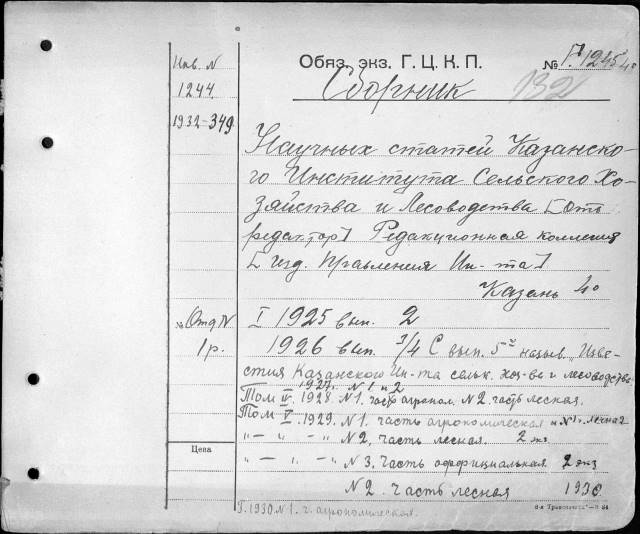 Инв. N
1244
1932-349
Обяз. экз. Г.Ц.К.П.
№ П 1245
132
Сборник
Научных статей Казанско-
го Института Сельского Хо-
зяйства и Лесоводства [Отв
редактор] Редакционная коллегия
[изд. Правления Ин-та]
Казань 4°
№ Отд IV I 1925 вып. 2
1р. 1926 вып. 3/4 С вып. 5го назыв. „Изве-
стия Казанского Ин-та сельк. хоз-ва и лесоводства
1927. N 1 и 2
Том IV. 1928 N1. часть агроном. N2. часть лесная.
Том V. 1929. N1. часть агрономическая и N1.
"— " — "— N2, часть лесная. 2 экз
Цена
"— " — "— N3. Часть оффициальная 2 экз
N2. Часть лесная 1930.
Г. 1930 N1. ч. агрономическая.